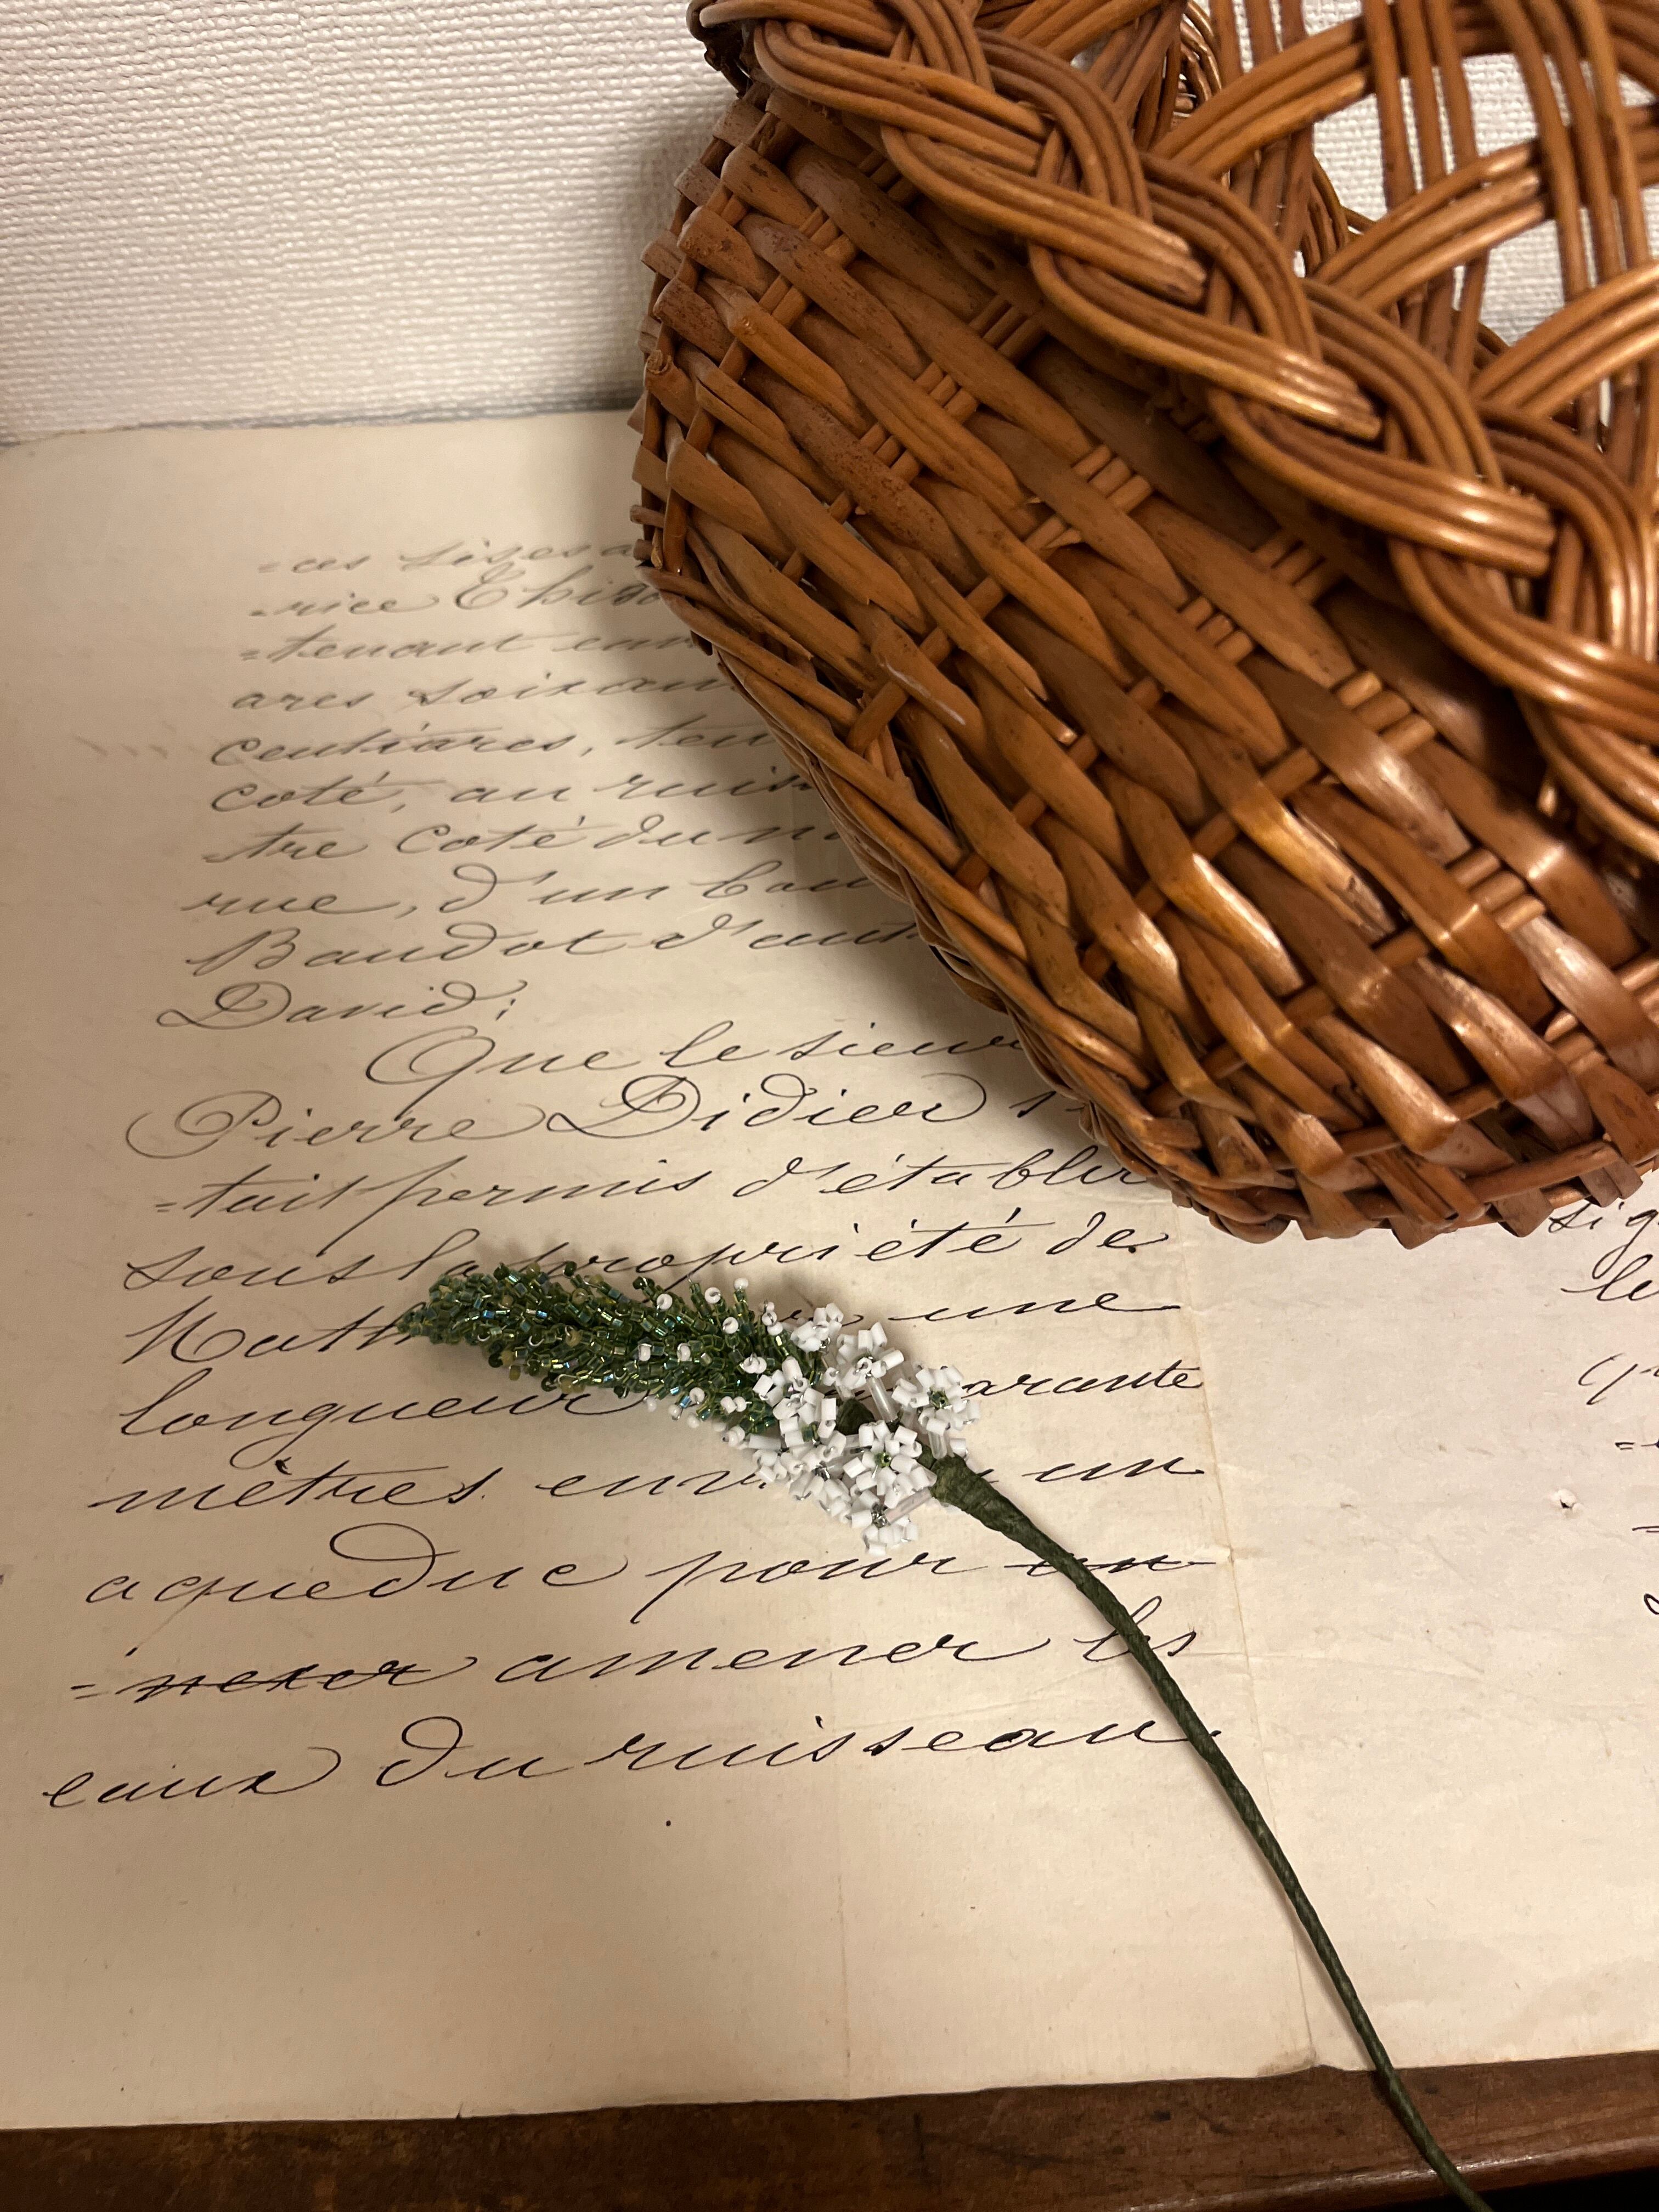 =ces sises a
-rice Ehiso
=tenant env
ares soixan
centiares, ten
coté, au ruis
-tre coté du n
rue, d'un bou
Baudot d'aut
David;
Que le sieur
Pierre Didier s'
=tait permis d'établir
sous la propriété de
Math une
longueur arante
mètres envi un
aqueduc pour en
=nexer amener les
eaux du ruisseau.
sig
le
q